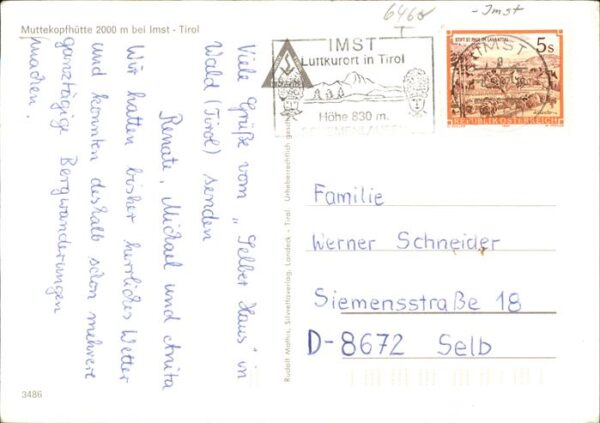 Muttekopfhütte 2000 m bei Imst - Tirol
Viele Grüße vom „Selber Haus" in
Wald (Tirol) senden
Renate, Michael und Anita
Wir hatten bisher herrliches Wetter
und konnten deshalb schon mehrere
ganztägige Bergwanderungen
machen.
3486
Rudolf Mathis, Silvrettaverlag, Landeck - Tirol Urheberrechtlich
6460
T
- Imst
IMST
Luftkurort in Tirol
Höhe 830 m.
STIFT ST. PAUL IM LAVANTTAL
5s
REPUBLIK ÖSTERREICH
IMST
Familie
Werner Schneider
Siemensstraße 18
D-8672 Selb